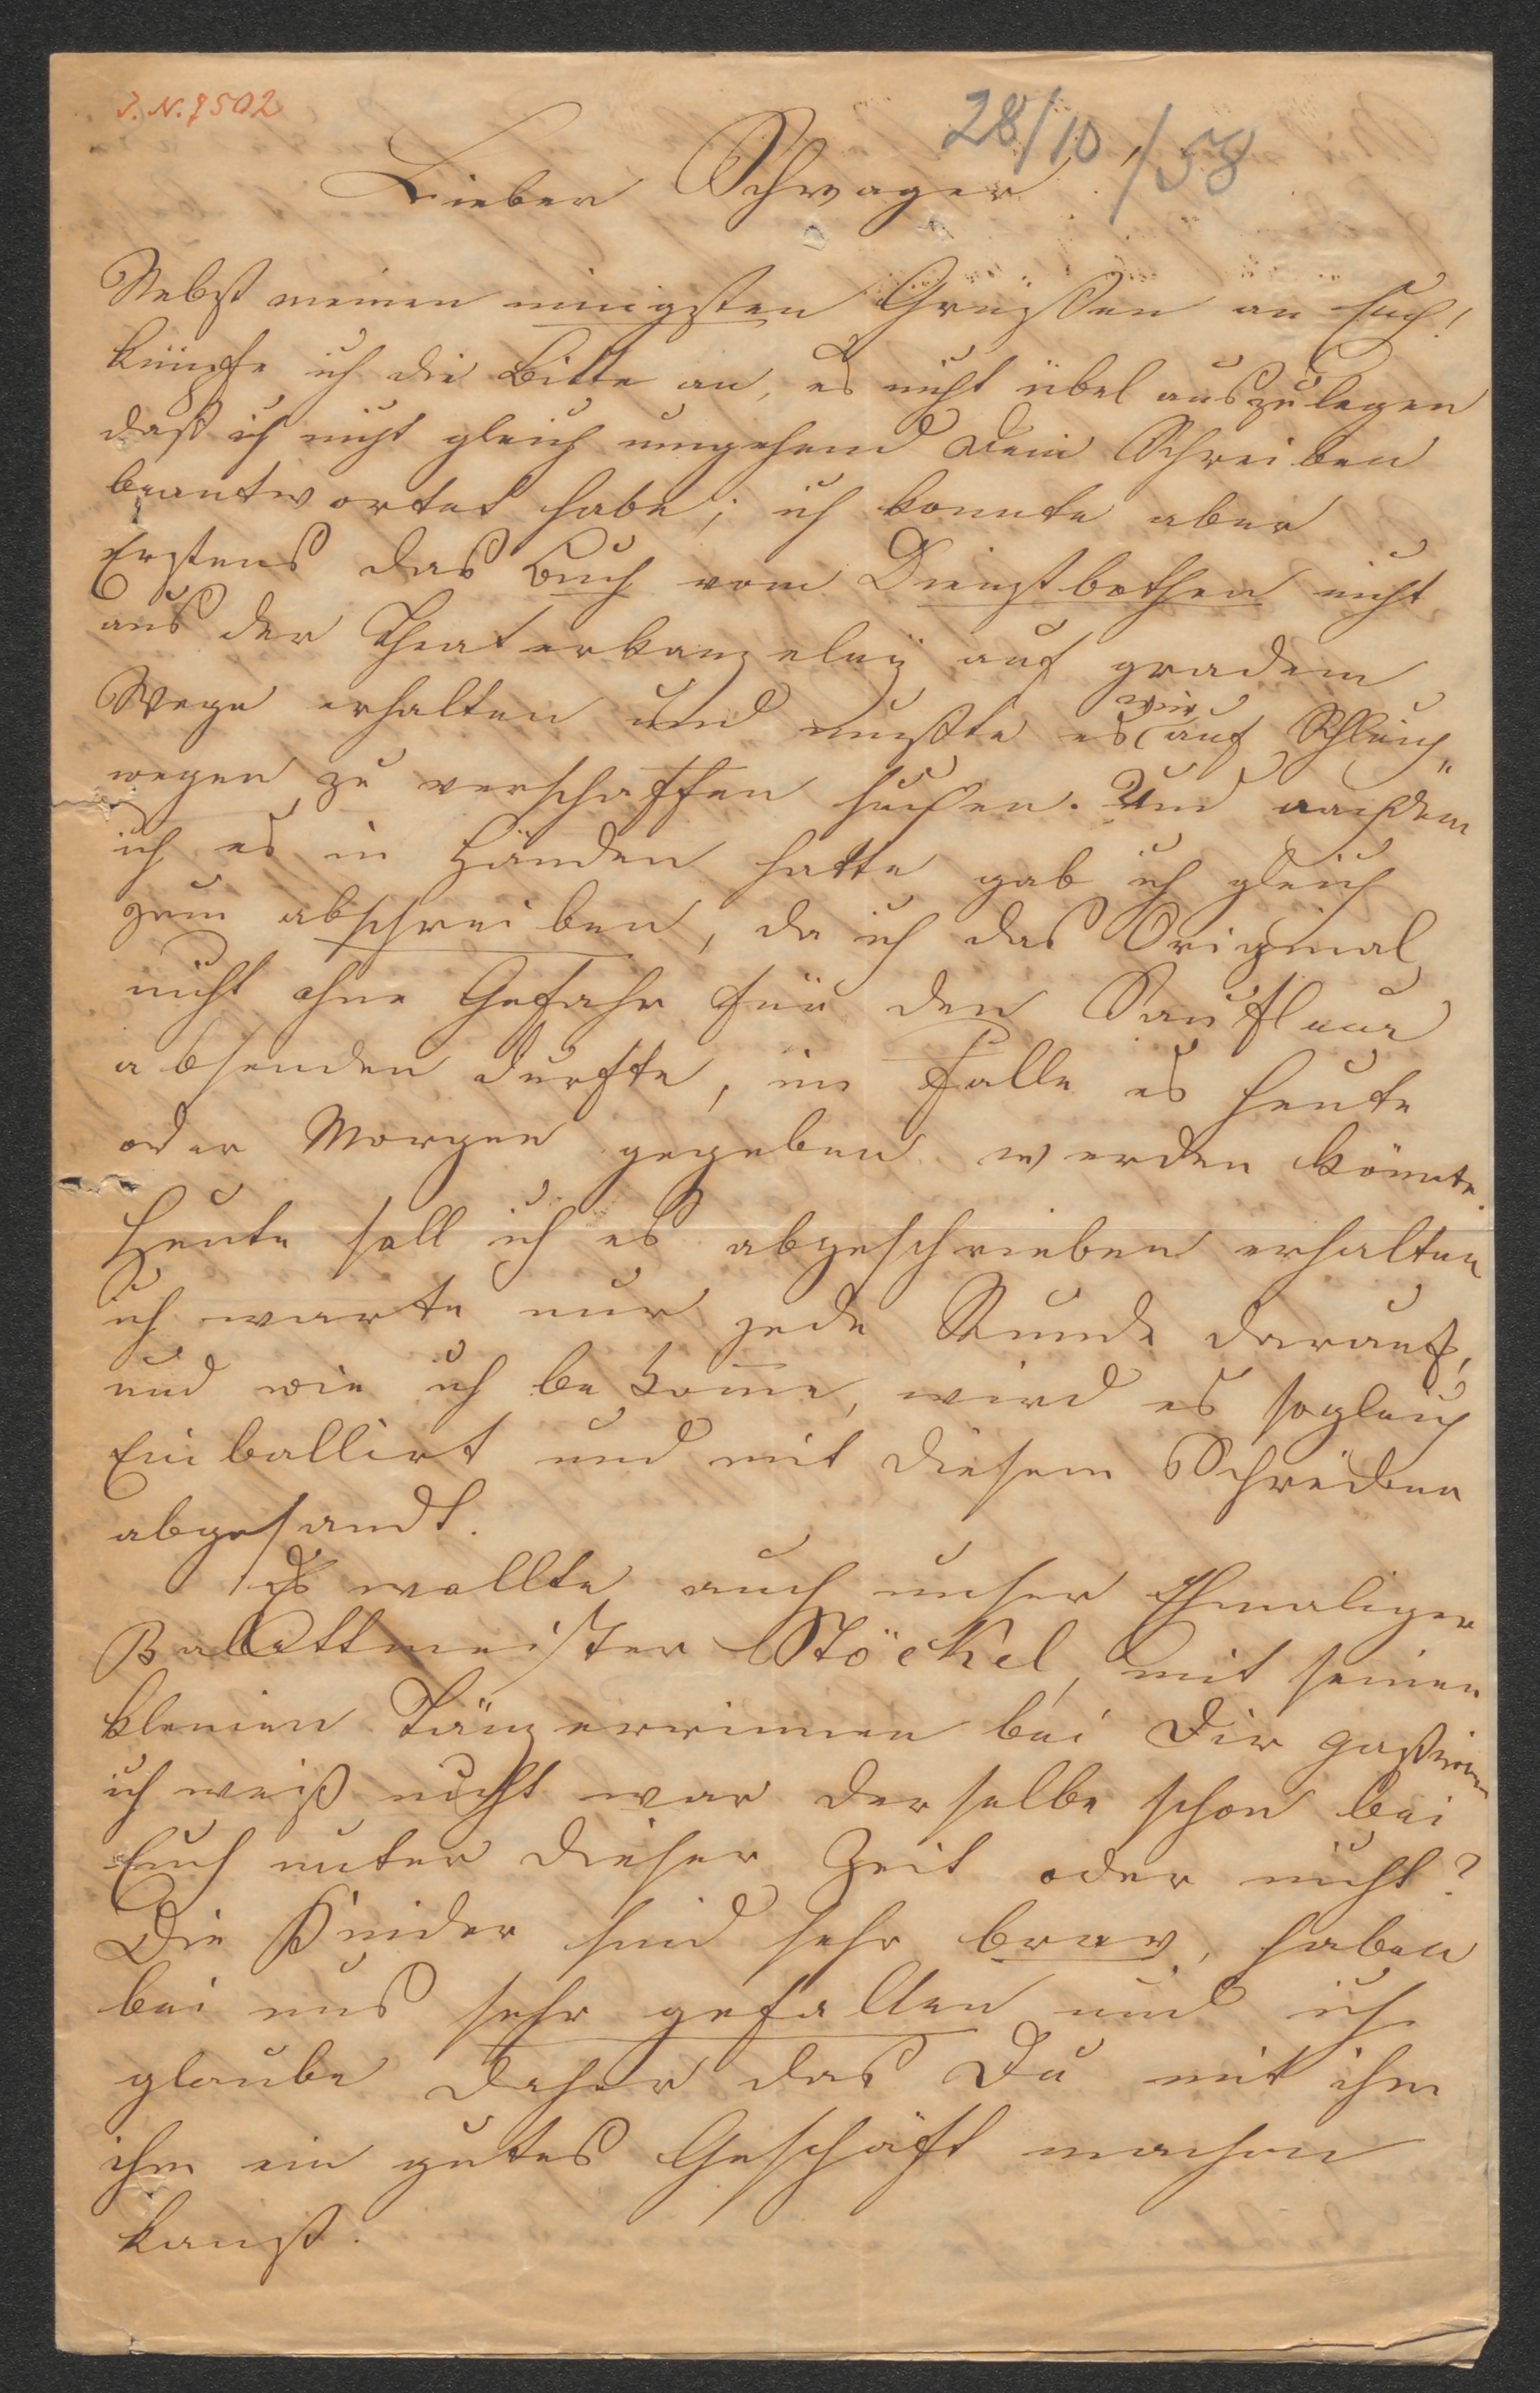 I. N. 7502
28/10/58
Lieber Schwager!
Nebst meinen innigsten Grüssen an Euch!
knüpfe ich die Bitte an, es nicht übel auszulegen
daß ich nicht gleich umgehend Dein Schreiben
beantwortet habe; ich konnte aber
Erstens das Buch vom Dienstbothen nicht
aus der Theaterkanzeley auf gradem
Wege erhalten und mußte es mir auf Schleich„
wegen zu verschaffen suchen. Und nachdem
ich es in Händen hatte gab ich gleich
zum abschreiben, da ich das Original
nicht ohne Gefahr für den Soufleur
absenden durfte, im Falle es heute
oder Morgen gegeben werden könnte.
Heute soll ich es abgeschrieben erhalten
ich warte nur jede Stunde darauf,
und wie ich bekom̄e, wird es sogleich
Einballirt und mit diesem Schreiben
abgesandt.
Es wollte auch unser Ehmaliger
Balettmeister Stöckel, mit seinen
kleinen Tänzerrinnen bei Dir gastiren
ich weiß nicht war derselbe schon bei
Euch unter dieser Zeit oder nicht?
Die Kinder sind sehr brav, haben
bei uns sehr gefallen und ich
glaube daher das Du mit ihm
ihm ein gutes Geschäft machen
kanst.